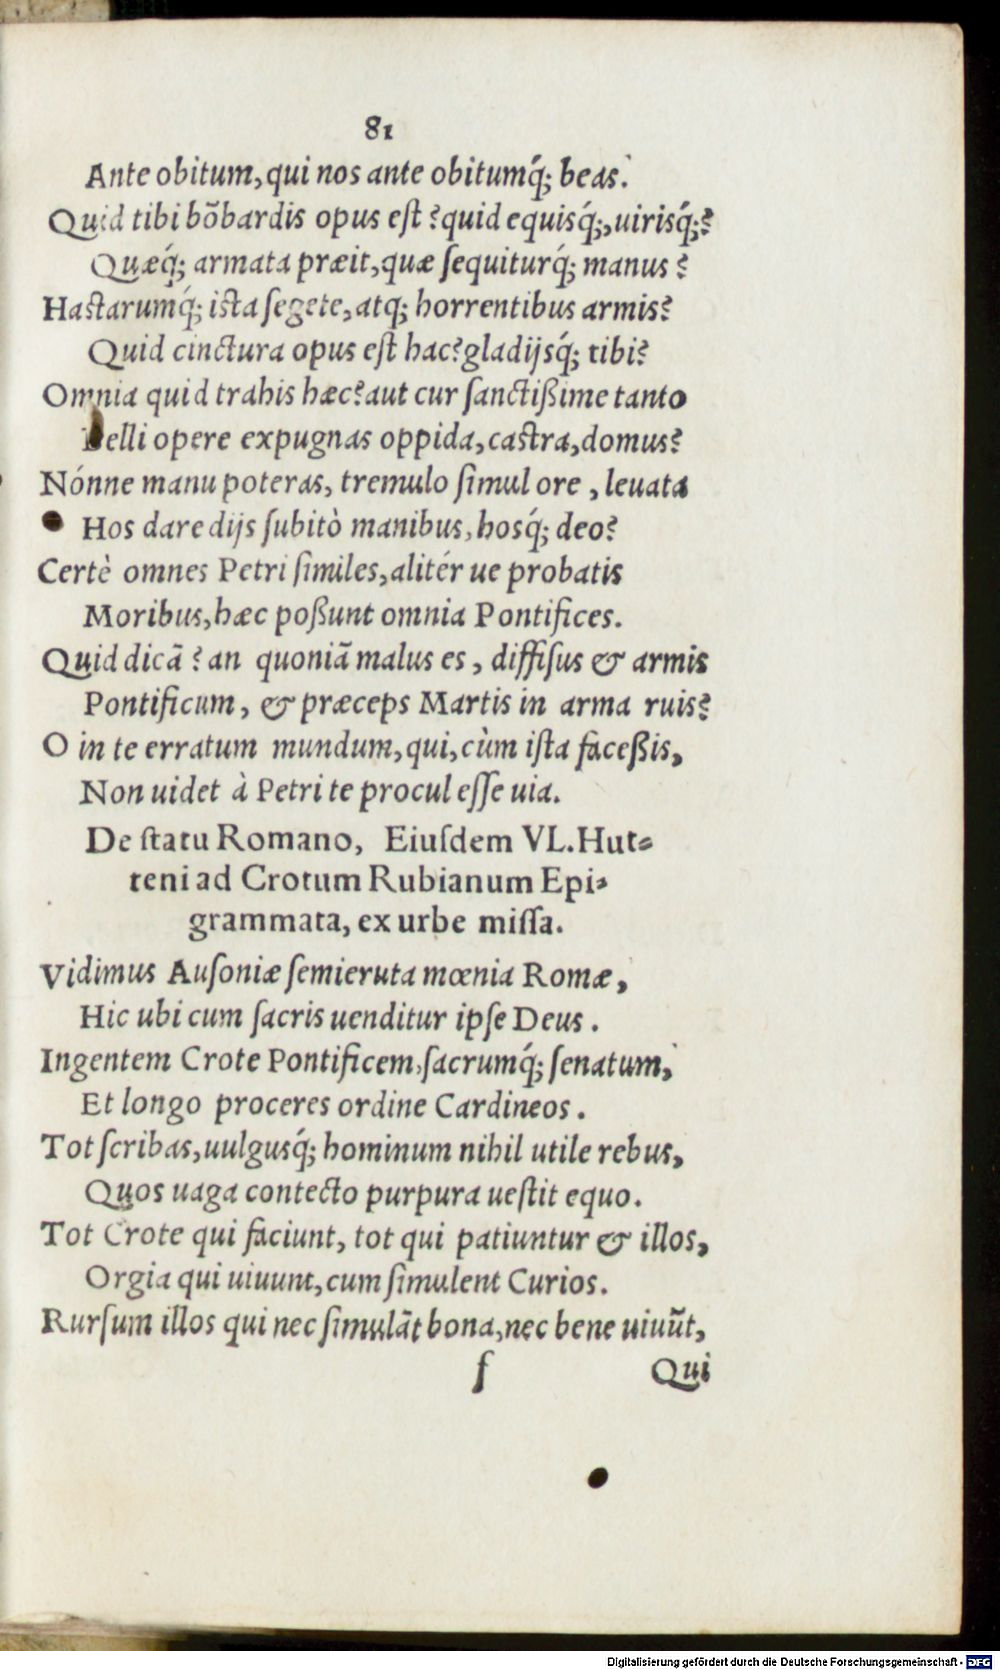 81
Ante obitum, qui nos ante obitumq́; beas.
Quid tibi bōbardis opus est? quid equisq́;, uirisq́;?
Quæq́; armata præit, quæ sequiturq́; manus?
Hastarumq́; ista segete, atq; horrentibus armis?
Quid cinctura opus est hac? gladijsq́; tibi?
Omnia quid trahis hæc? aut cur sanctißime tanto
Belli opere expugnas oppida, castra, domus?
Nónne manu poteras, tremulo simul ore, leuata
Hos dare dijs subitò manibus, hosq́; deo?
Certè omnes Petri similes, alitér ue probatis
Moribus, hæc poßunt omnia Pontifices.
Quid dicã? an quoniã malus es, diffisus & armis
Pontificum, & præceps Martis in arma ruis?
O in te erratum mundum, qui, cùm ista faceßis,
Non uidet à Petri te procul esse uia.
De statu Romano, Eiusdem VL. Hut-
teni ad Crotum Rubianum Epi-
grammata, ex urbe missa.
Vidimus Ausoniæ semieruta mœnia Romæ,
Hic ubi cum sacris uenditur ipse Deus.
Ingentem Crote Pontificem, sacrumq́; senatum,
Et longo proceres ordine Cardineos.
Tot scribas, uulgusq́; hominum nihil utile rebus,
Quos uaga contecto purpura uestit equo.
Tot Crote qui faciunt, tot qui patiuntur & illos,
Orgia qui uiuunt, cum simulent Curios.
Rursum illos qui nec simulãt bona, nec bene uiuũt,
f Qui
Digitalisierung gefördert durch die Deutsche Forschungsgemeinschaft - DFG